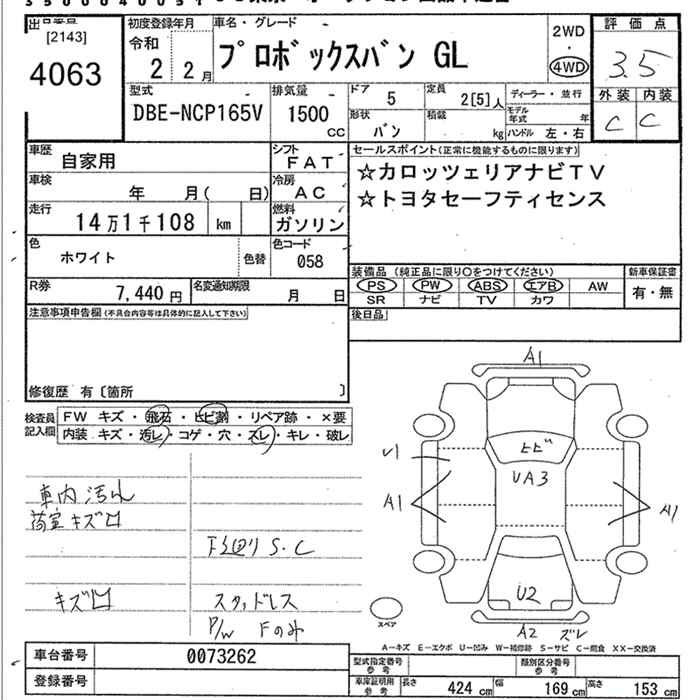 出品番号
[2143]
4063
初度登録年月
令和
2 2月
車名・グレード
プロボックスバン GL
2WD
・
4WD
評価点
3.5
外装 内装
C C
型式
DBE-NCP165V
排気量
1500
CC
ドア
5
定員
2[5]人
ディーラー・並行
形状
バン
積載
kg
モデル年式
年
ハンドル 左・右
車歴
自家用
シフト
FAT
車検
年 月( 日)
冷房
AC
走行
14万1千108 km
燃料
ガソリン
色
ホワイト
色替
色コード
058
R券
7,440 円
名変通知期限
月 日
セールスポイント(正常に機能するものに限ります)
☆カロッツェリアナビTV
☆トヨタセーフティセンス
装備品 (純正品に限り○をつけてください)
新車保証書
PS PW ABS エアB AW
有・無
SR ナビ TV カワ
後日品
注意事項申告欄(不具合内容等は具体的に記入して下さい)
修復歴 有〔箇所 〕
検査員記入欄
FW キズ・飛石・ヒビ割・リペア跡・×要
内装 キズ・汚レ・コゲ・穴・スレ・キレ・破レ
車内汚れ
荷室キズ凹
下廻りS.C
キズ凹
スタッドレス
P/W Fのみ
A1
ヒビ
UA3
A1
A1
U2
A2 ズレ
スペア
A-キズ E-エクボ U-凹み W-補修跡 S-サビ C-腐食 XX-交換済
車台番号
0073262
登録番号
型式指定番号
参考
類別区分番号
参考
車庫証明用
参考
長さ 424 cm 幅 169 cm 高さ 153 cm